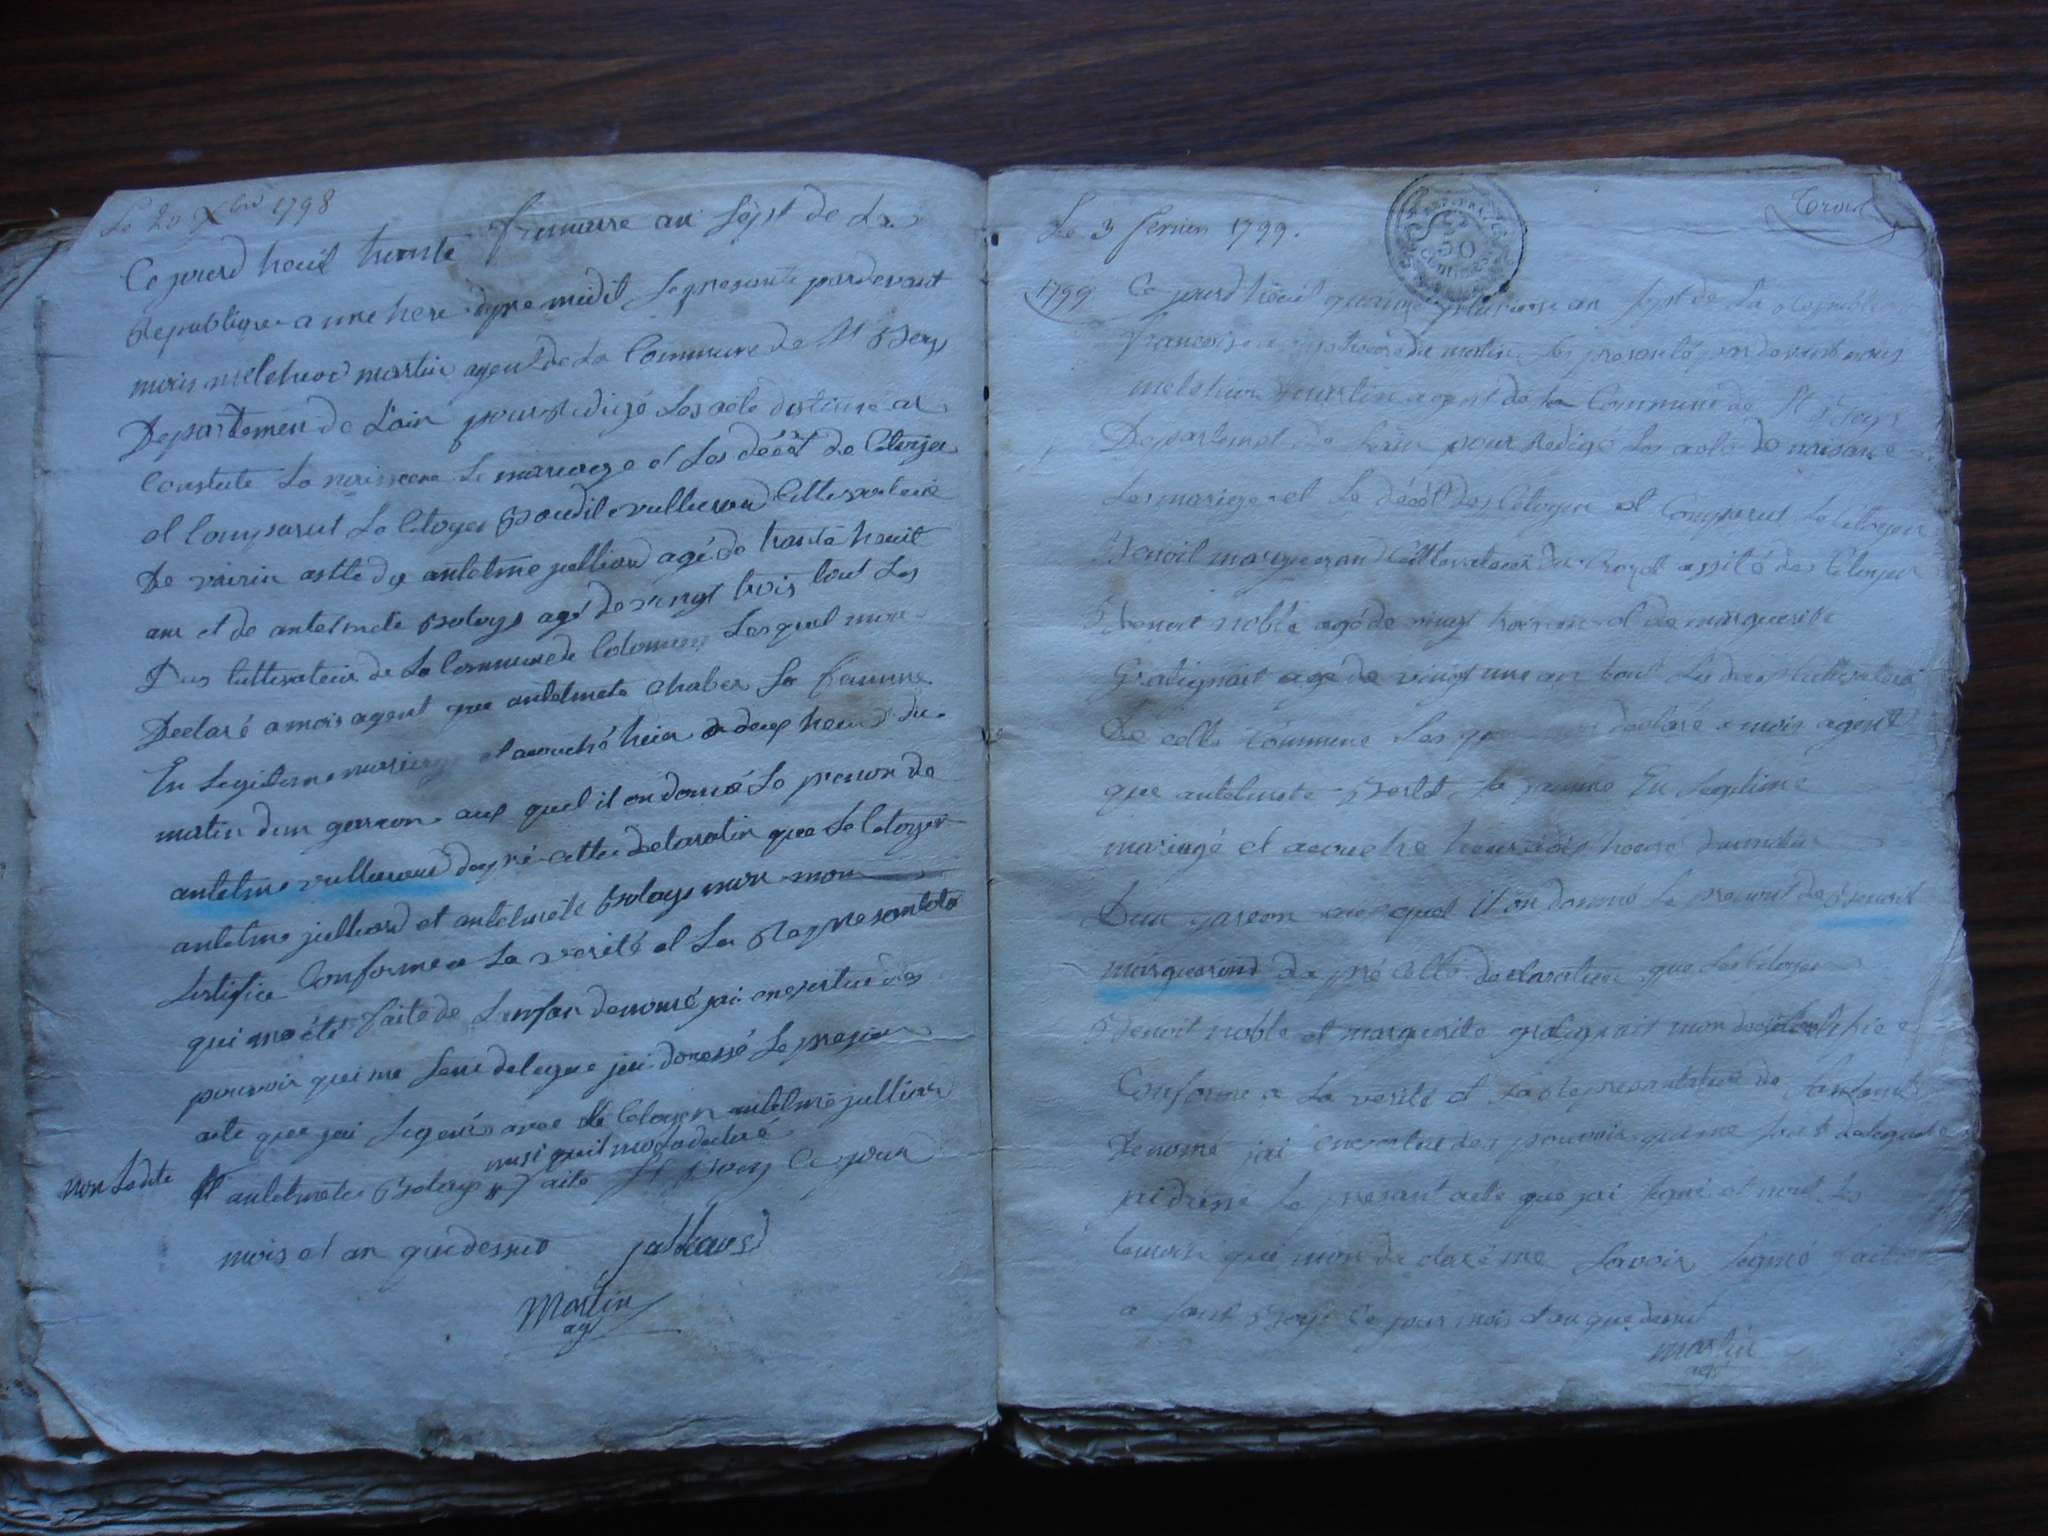 Le 20 Xbre 1798
Ce jourd heuil trante frimaire an sept de La
Republique a une here apre midit Se presanté pardevant
mois melchior martin agent de La Commune de St Boys
Departemen de L'ain pour Rédigé Les acte destiné a
Constate La naissance Le mariage et Les décét de Citoyen
et Comparut Le Citoyen vullierod Cultivateur
De virin asité de antelme julliard agé de trante heuit
ans et de antelmete Boloys agé de vingt trois tout Les
Deus Cultivateur de La Commune de Colomieu Lesquel mon
Declaré a mois agent que antelmete Chaber Sa famme
En Legitime mariage et acouché hier a deux heure du
matin dun garson aux quel il on doné Le prenon de
antelme vullierod dapré cette declaration que Le Citoyen
antelme julliard et antelmete Boloys mon
Sertifié Conforme a La verité et La Representatio
qui ma été faite de Lanfan denomé jai en vertu des
pouvoir qui me Son delegue jai dressé Le present
acte que jai Signé avec Le Citoyen antelme julliard
non Ladite antelmete Boloys faite St Boys Ce jour
nusi quil ma déclaré
mois et an que dessus julliard
Martin
ag
Le 3 fevrier 1799.
50
Centimes
Trois
1799 Ce jourd heuil quinze pluviose an sept de La Republique
francoise a quatre heure du matin Ses presanté par devant nous
melchior martin agent de La Commune de St Boys
Departemet de Lain pour Redigé Les acte de naisance
Les mariage et Le décét des Citoyen et Comparut Le Citoyen
Benoit marguerand Cultivateur de asité des Citoyen
Benoit noble agé de vingt trois an et de marguerite
Gratignait agé de vingt une an tout Les deux Cultivateur
De cette Commune Les quel mon declaré a mois agent
que antelmete Berlet Sa famme En Legitime
mariage et acouche heure du matin
Dun garson aux quel il on donné Le prenont de Benoit
marguerand da pré cette declaration que Les Citoyen
Benoit noble et marguerite gratignait mon Sertifié
Conforme a La verité et La representation de Lanfant
denomé jai en vertu des pouvoir qui me Sont delegué
jai dressé Le presant acte que jai Signé et nont Les
temoin qui mon declaré ne Savoir Signé fait
a Saint Boys Ce jour mois et an que desus
martin
ag